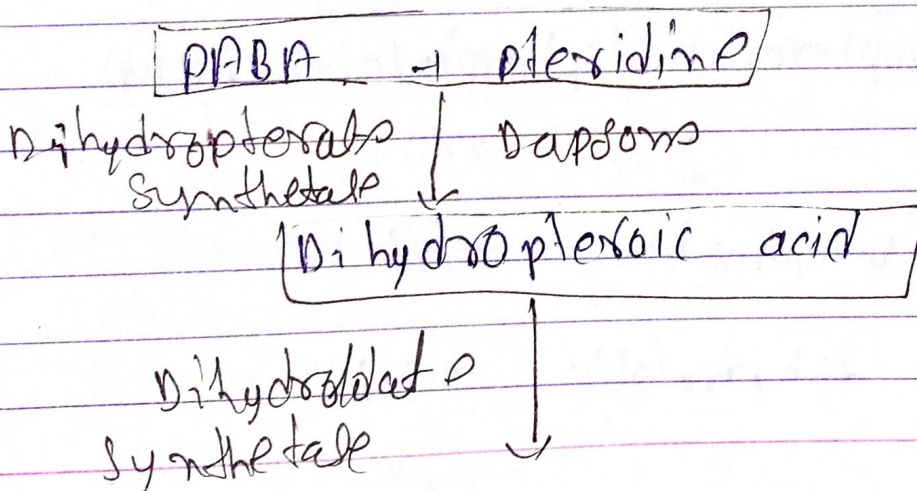 PABA + pteridine
Dihydropterate Dapsone
Synthetase
Dihydropteroic acid
Dihydrofolate
Synthetase